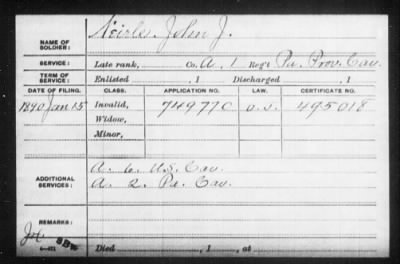 NAME OF SOLDIER: Noirle, John J.
SERVICE: Late rank, Co. A, 1 Reg't Pa. Prov. Cav.
TERM OF SERVICE: Enlisted , 1 Discharged , 1
DATE OF FILING. CLASS. APPLICATION NO. LAW. CERTIFICATE NO.
1890 Jan 15 Invalid, 749770 O.S. 495018
Widow,
Minor,
ADDITIONAL SERVICES: A. 6. U.S. Cav.
A. 2. Pa. Cav.
REMARKS:
Died , 1 , at